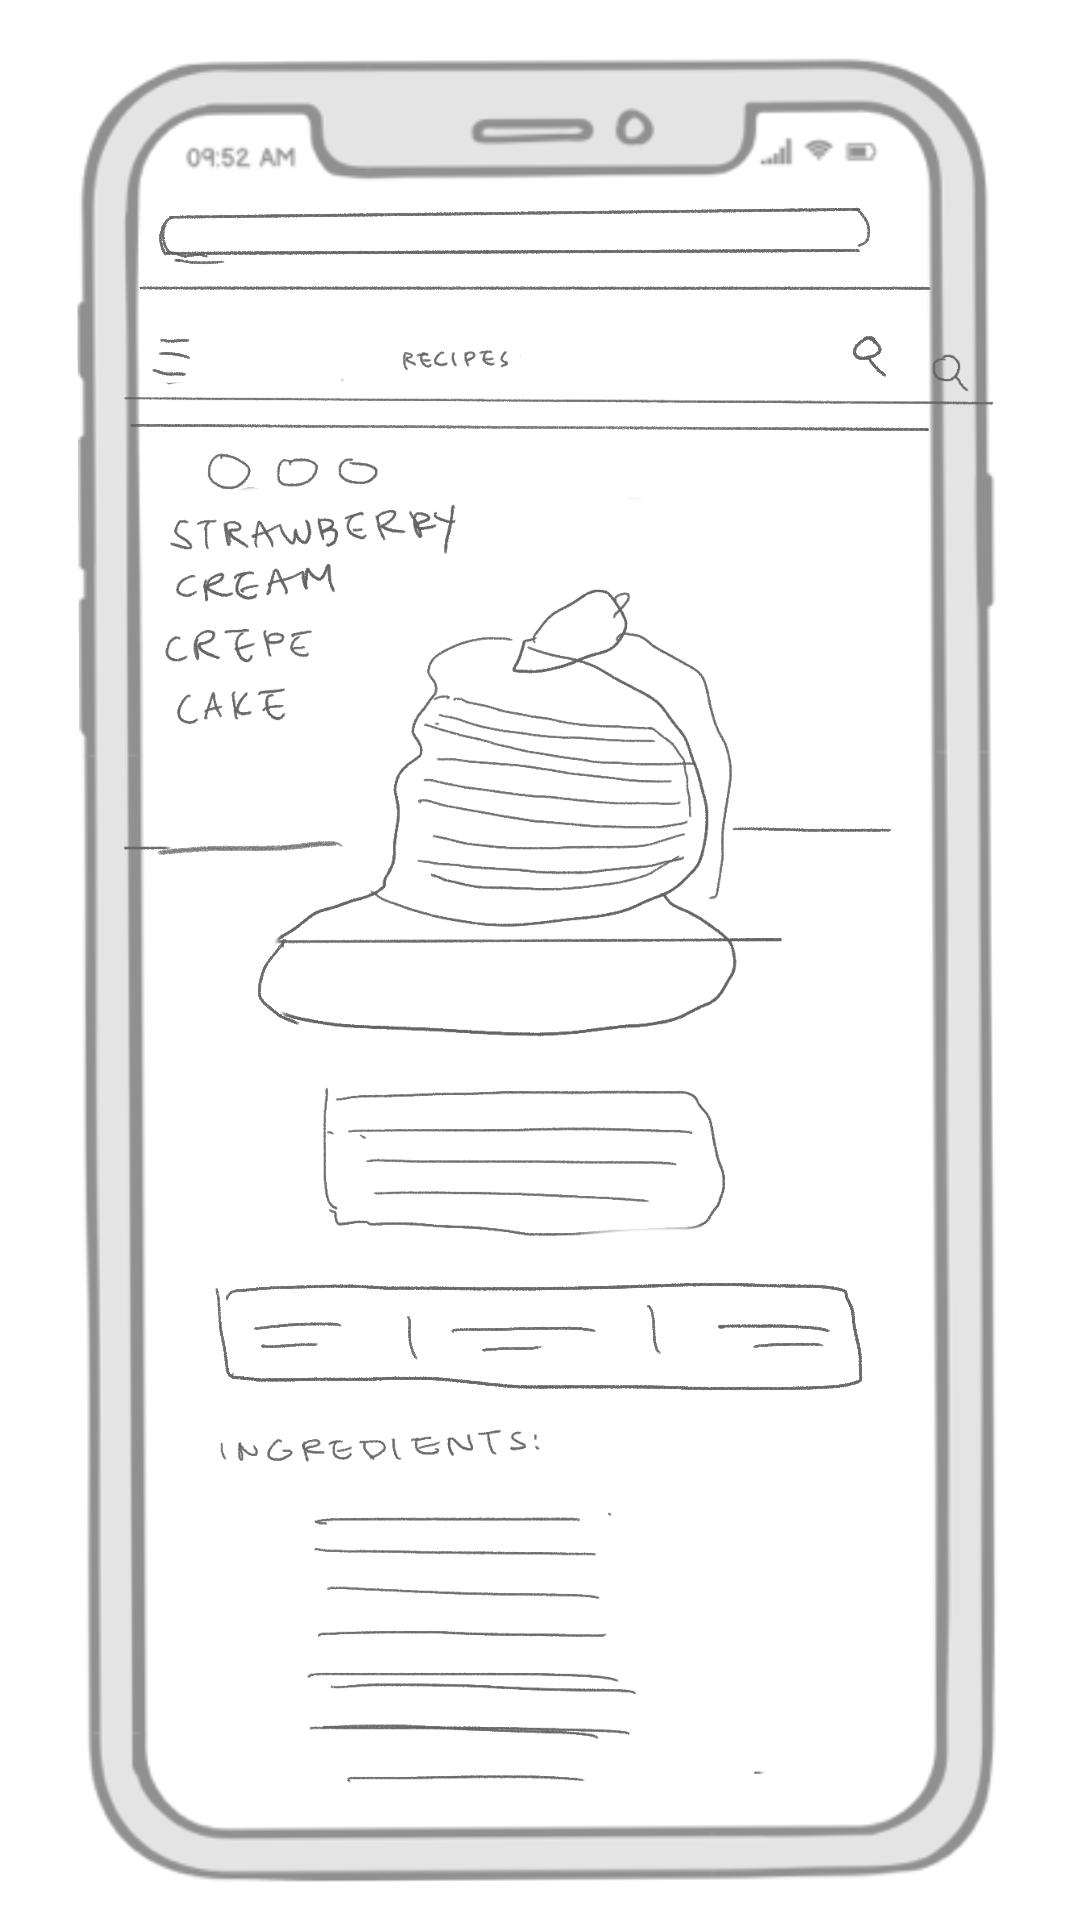 09:52 AM
RECIPES
STRAWBERRY
CREAM
CREPE
CAKE
INGREDIENTS: